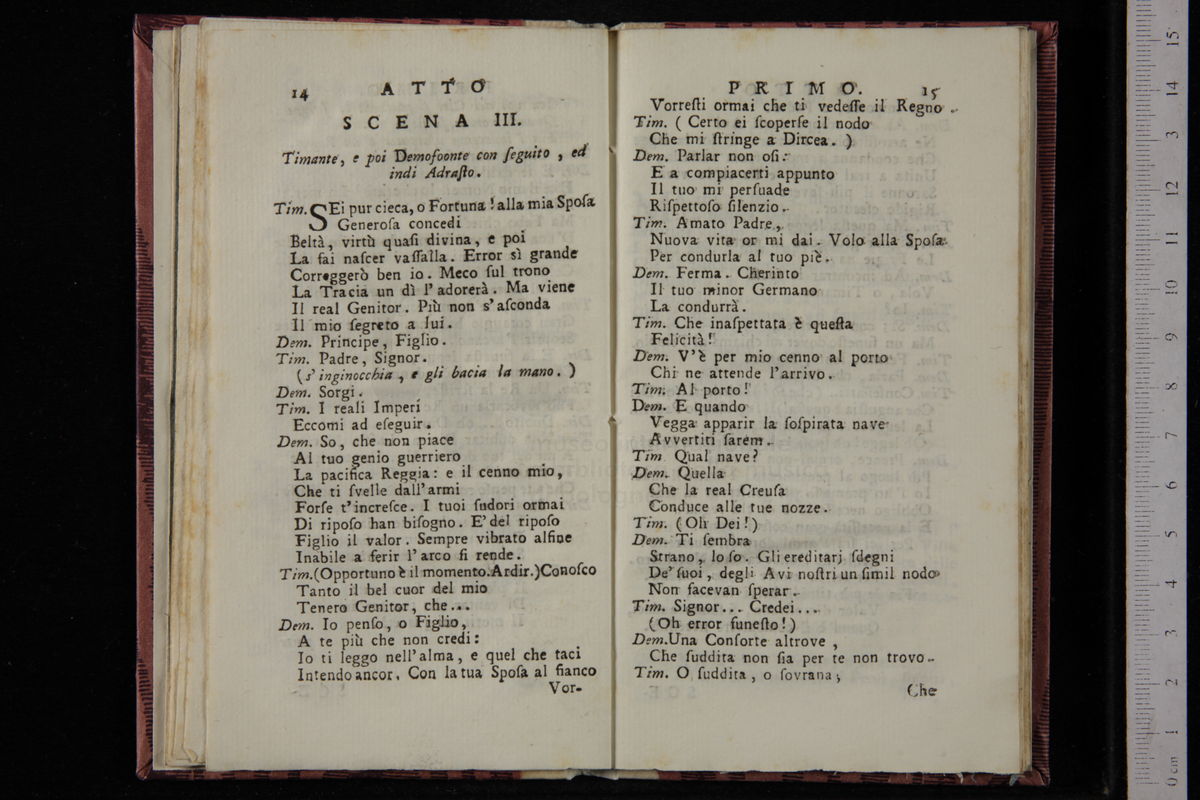 14 ATTO
SCENA III.
Timante, e poi Demofoonte con ſeguito, ed
indi Adraſto.
Tim. SEi pur cieca, o Fortuna! alla mia Spoſa
Generoſa concedi
Beltà, virtù quaſi divina, e poi
La fai naſcer vaſſalla. Error sì grande
Correggerò ben io. Meco ſul trono
La Tracia un dì l'adorerà. Ma viene
Il real Genitor. Più non s'aſconda
Il mio ſegreto a lui.
Dem. Principe, Figlio.
Tim. Padre, Signor.
(s'inginocchia, e gli bacia la mano.)
Dem. Sorgi.
Tim. I reali Imperi
Eccomi ad eſeguir.
Dem. So, che non piace
Al tuo genio guerriero
La pacifica Reggia: e il cenno mio,
Che ti ſvelle dall'armi
Forſe t'increſce. I tuoi ſudori ormai
Di ripoſo han biſogno. E' del ripoſo
Figlio il valor. Sempre vibrato alfine
Inabile a ferir l'arco ſi rende.
Tim. (Opportuno è il momento. Ardir.) Conoſco
Tanto il bel cuor del mio
Tenero Genitor, che...
Dem. Io penſo, o Figlio,
A te più che non credi:
Io ti leggo nell'alma, e quel che taci
Intendo ancor. Con la tua Spoſa al fianco
Vor-
PRIMO. 15
Vorreſti ormai che ti vedeſſe il Regno.
Tim. (Certo ei ſcoperſe il nodo
Che mi ſtringe a Dircea.)
Dem. Parlar non oſi:
E a compiacerti appunto
Il tuo mi perſuade
Riſpettoſo ſilenzio.
Tim. Amato Padre,
Nuova vita or mi dai. Volo alla Spoſa
Per condurla al tuo piè.
Dem. Ferma. Cherinto
Il tuo minor Germano
La condurrà.
Tim. Che inaſpettata è queſta
Felicità!
Dem. V'è per mio cenno al porto
Chi ne attende l'arrivo.
Tim. Al porto!
Dem. E quando
Vegga apparir la ſoſpirata nave
Avvertiti ſarem.
Tim Qual nave?
Dem. Quella
Che la real Creuſa
Conduce alle tue nozze.
Tim. (Oh Dei!)
Dem. Ti ſembra
Strano, lo ſo. Gli ereditarj ſdegni
De' ſuoi, degli Avi noſtri un ſimil nodo
Non facevan ſperar.
Tim. Signor... Credei...
(Oh error funeſto!)
Dem. Una Conſorte altrove,
Che ſuddita non ſia per te non trovo.
Tim. O ſuddita, o ſovrana,
Che
0 cm 1 2 3 4 5 6 7 8 9 10 11 12 13 14 15